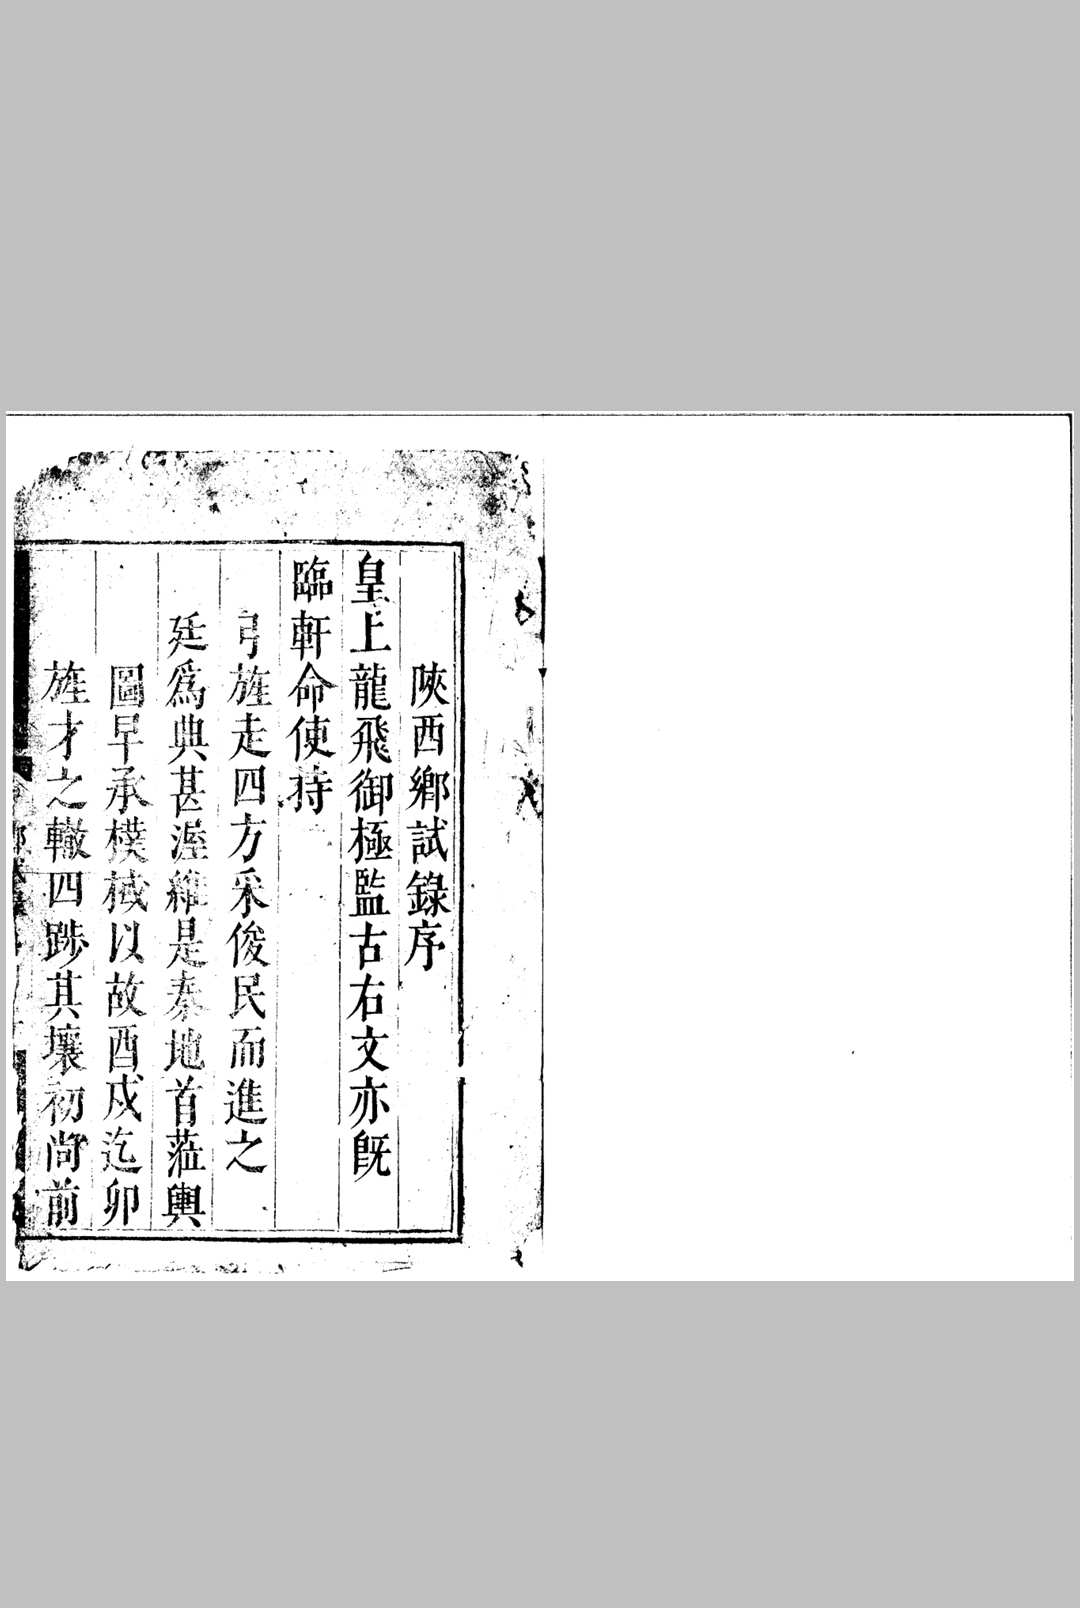 陝西鄉試錄序
皇上龍飛御極監古右文亦旣
臨軒命使持
弓旌走四方采俊民而進之
廷爲典甚渥維是秦地首蒞輿
圖早承樸棫以故酉戌迄卯
旌才之轍四踄其壤初尚前